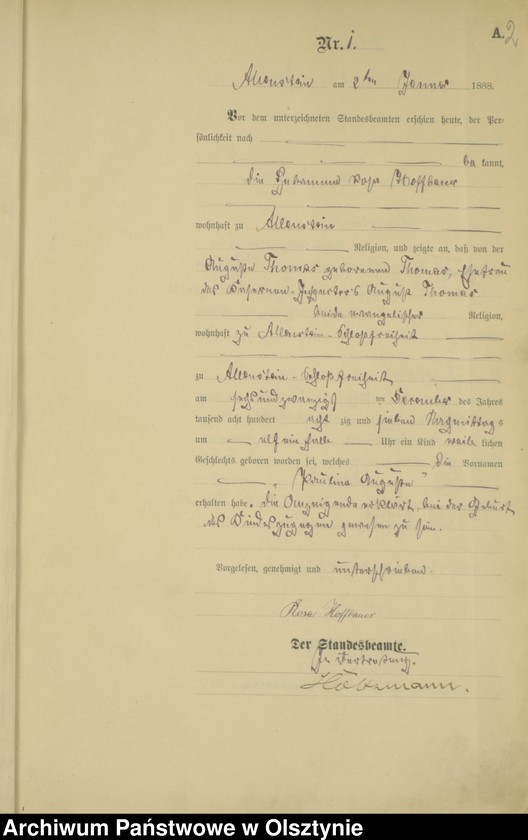 A. 2
Nr. 1.
Allenstein am 2ten Januar 1888.
Vor dem unterzeichneten Standesbeamten erschien heute, der Per-
sönlichkeit nach
bekannt,
die Hebamme Rosa Hoffbauer
wohnhaft zu Allenstein
Religion, und zeigte an, daß von der
Auguste Thomas geborenen Thomas, Ehefrau
des Kasernen-Inspector's August Thomas
beide evangelischer Religion,
wohnhaft zu Allenstein-Schloßfreiheit
zu Allenstein-Schloßfreiheit
am sechsundzwanzigsten December des Jahres
tausend acht hundert achtzig und sieben Nachmittags
um elf ein halb Uhr ein Kind weiblichen
Geschlechts geboren worden sei, welches die Vornamen
„Pauline Auguste"
erhalten habe. die Anzeigende erklärt, bei der Geburt
des Kindes zugegen gewesen zu sein.
Vorgelesen, genehmigt und unterschrieben.
Rosa Hoffbauer
Der Standesbeamte.
In Vertretung.
Archiwum Państwowe w Olsztynie